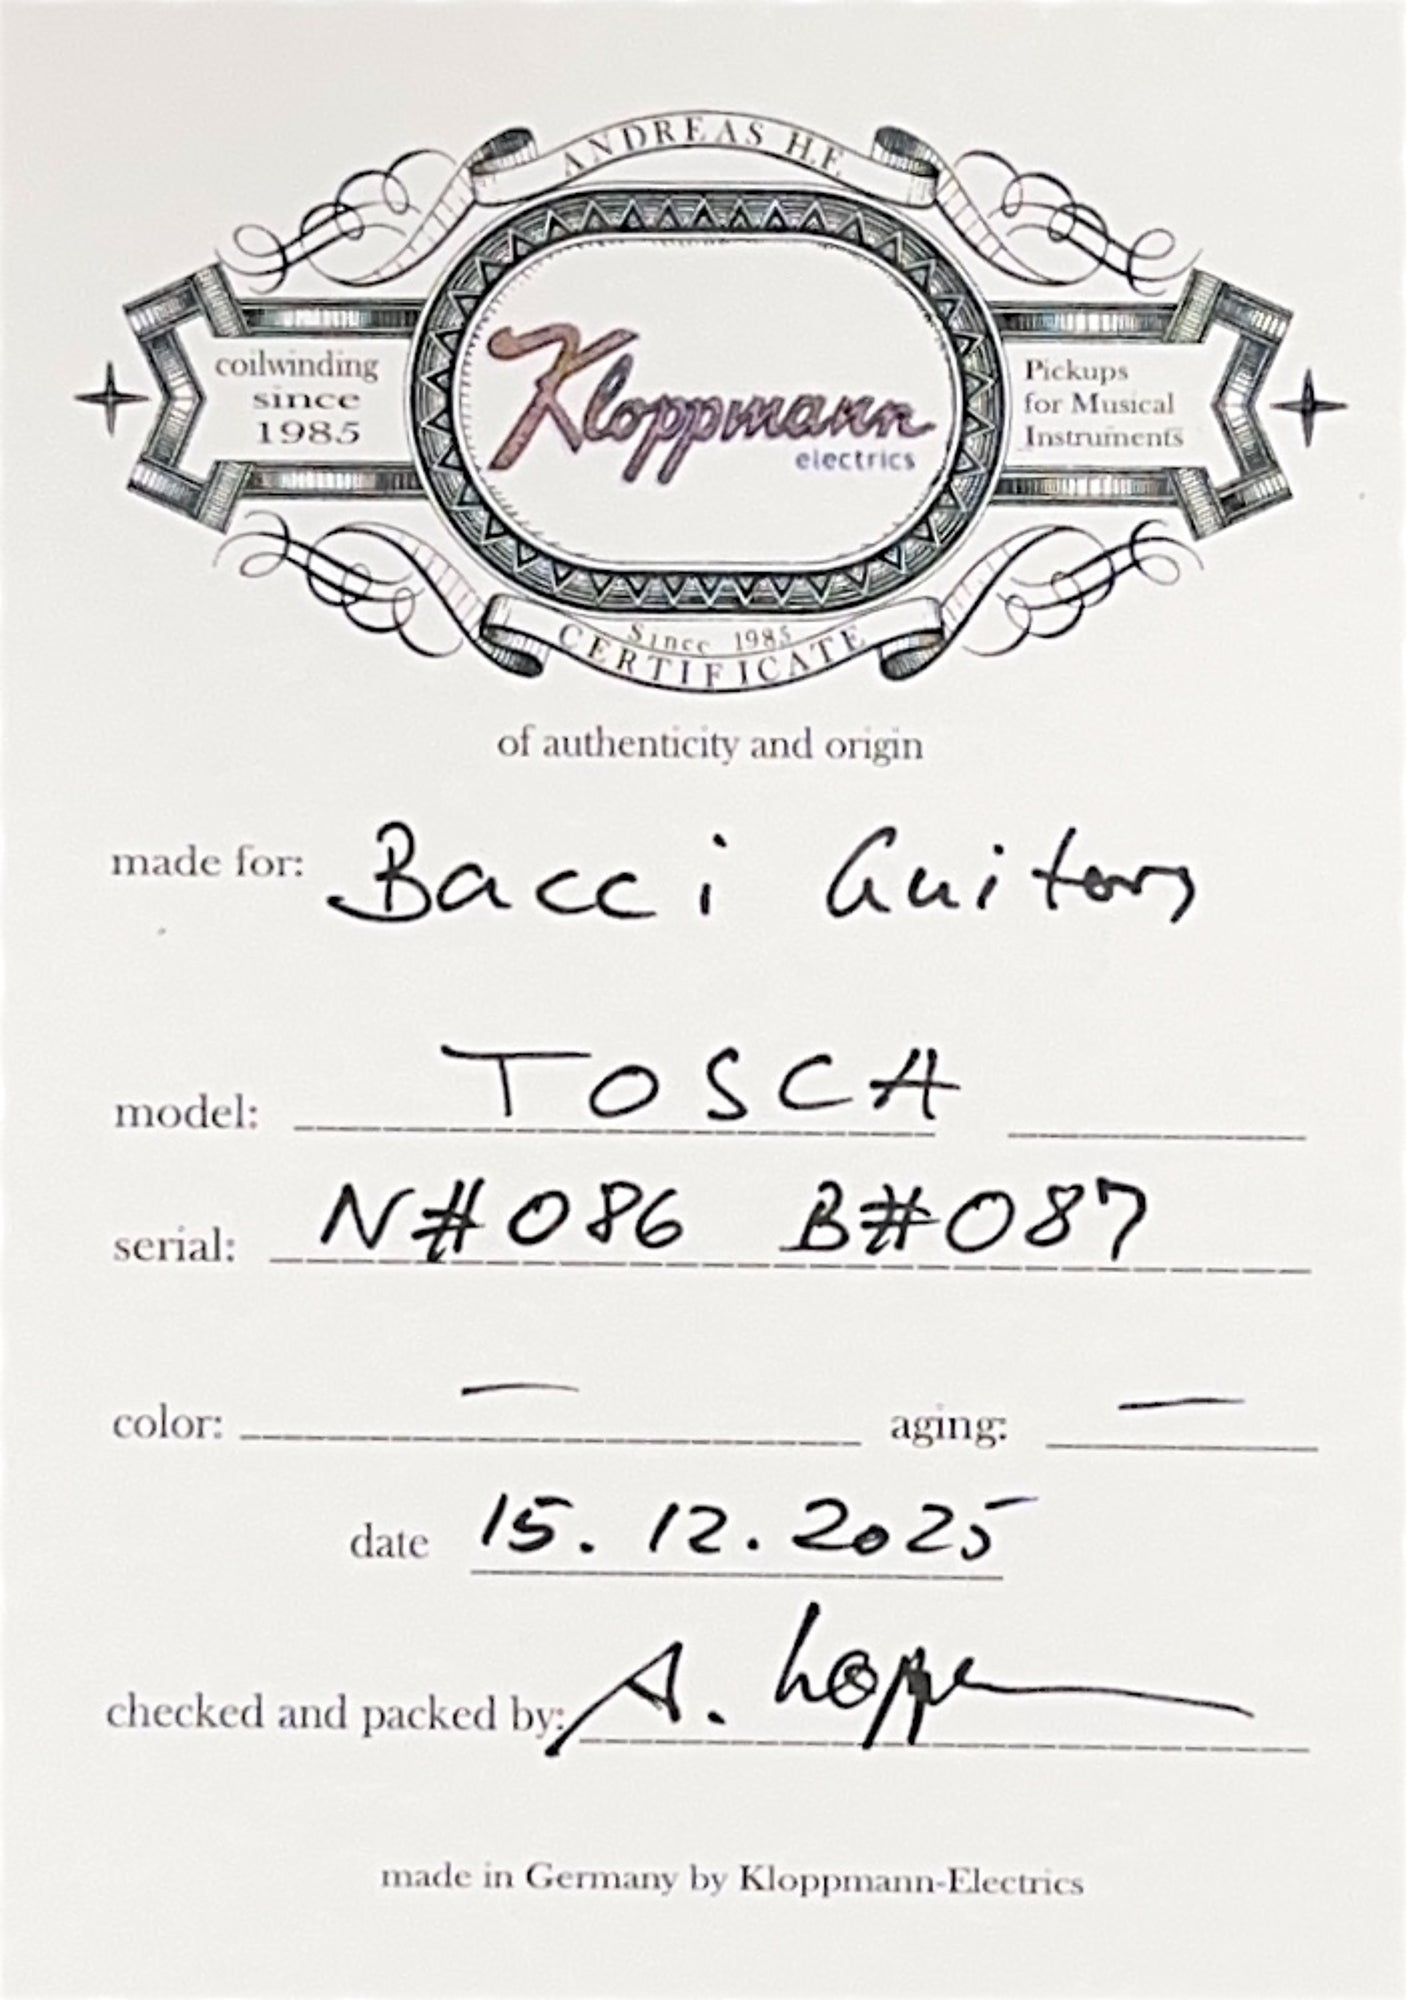 ANDREAS H.F.
Kloppmann
electrics
coilwinding
since
1985
Pickups
for Musical
Instruments
Since 1985
CERTIFICATE
of authenticity and origin
made for: Bacci Guitars
model: TOSCA
serial: N#086 B#087
color: — aging: —
date 15.12.2025
checked and packed by: A. Kloppmann
made in Germany by Kloppmann-Electrics